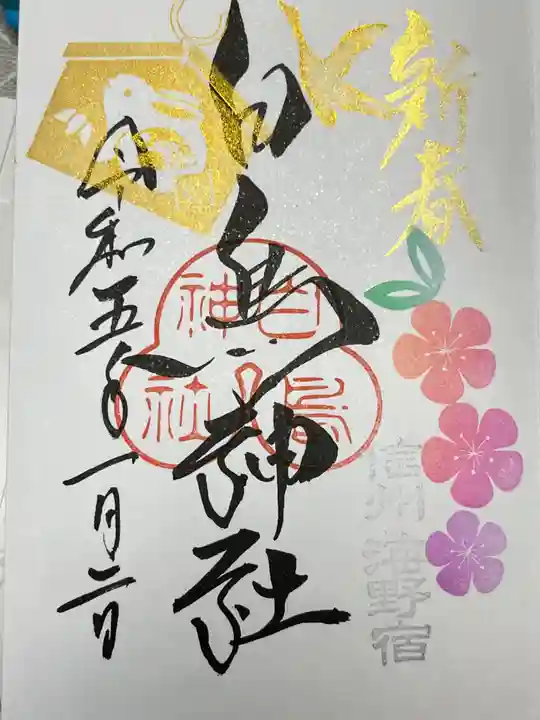 新春
信州 海野宿
白鳥神社
白鳥
神社
令和五年一月二日